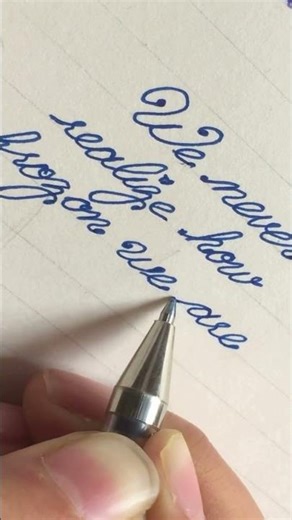 We never
realize how
frozen we are